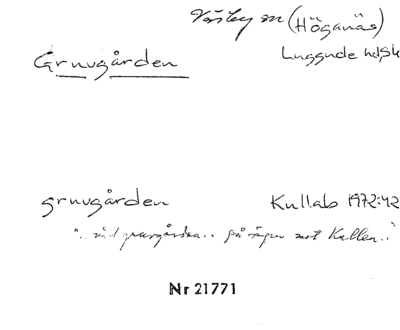 Väsby sn (Höganäs)
Gruvgården Luggude hd, Sk
gruvgården Kullab 1972:42
".. vid gruvgården.. på vägen mot Kullen.."
Nr 21771